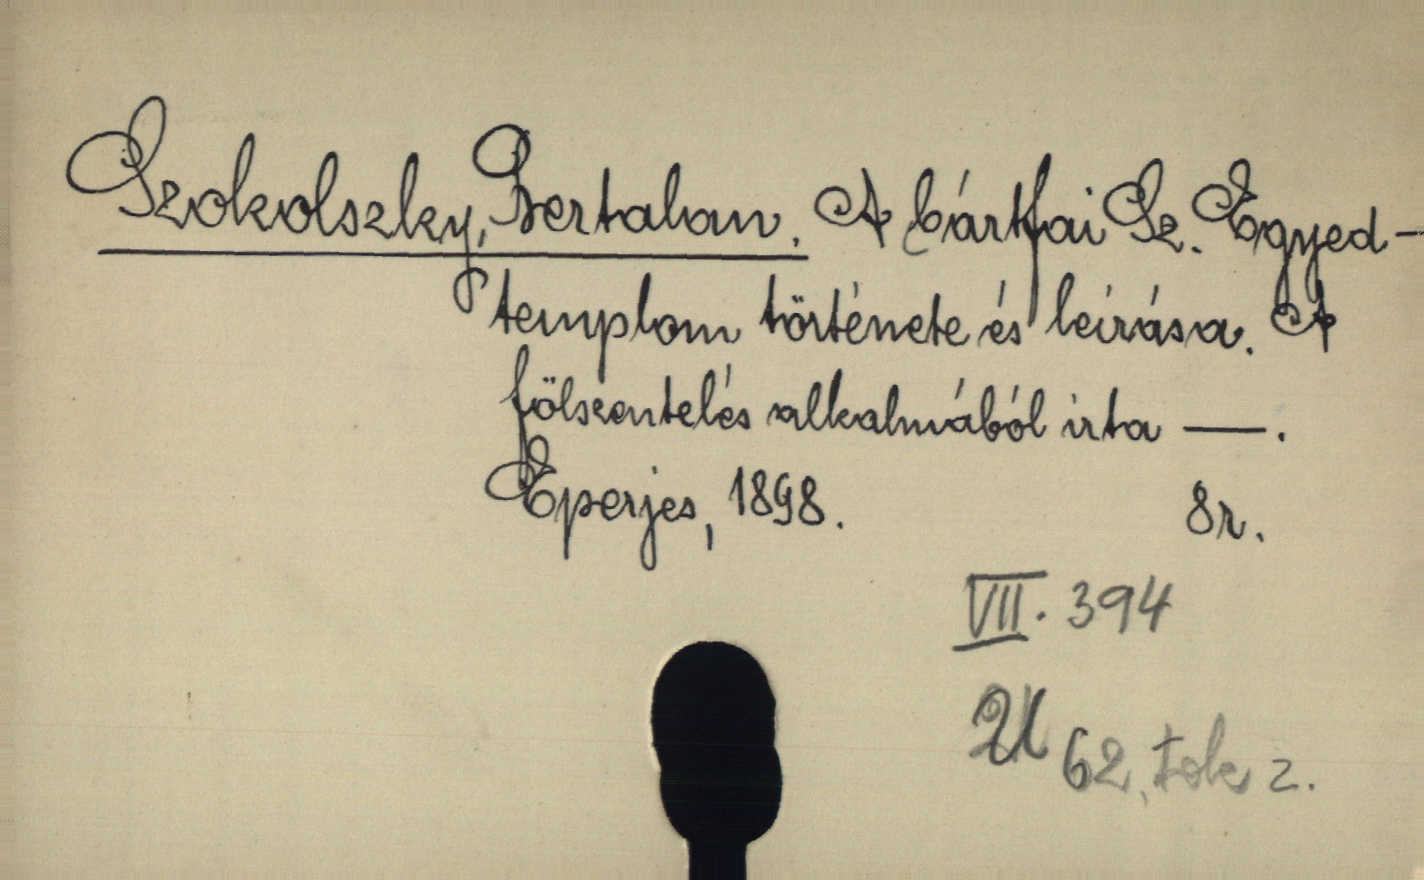 Szokolszky, Bertalan. A bártfai Sz. Egyed-
templom története és leirása. A
fölszentelés alkalmából irta —.
Eperjes, 1898. 8r.
VII. 394
U 62, tok 2.